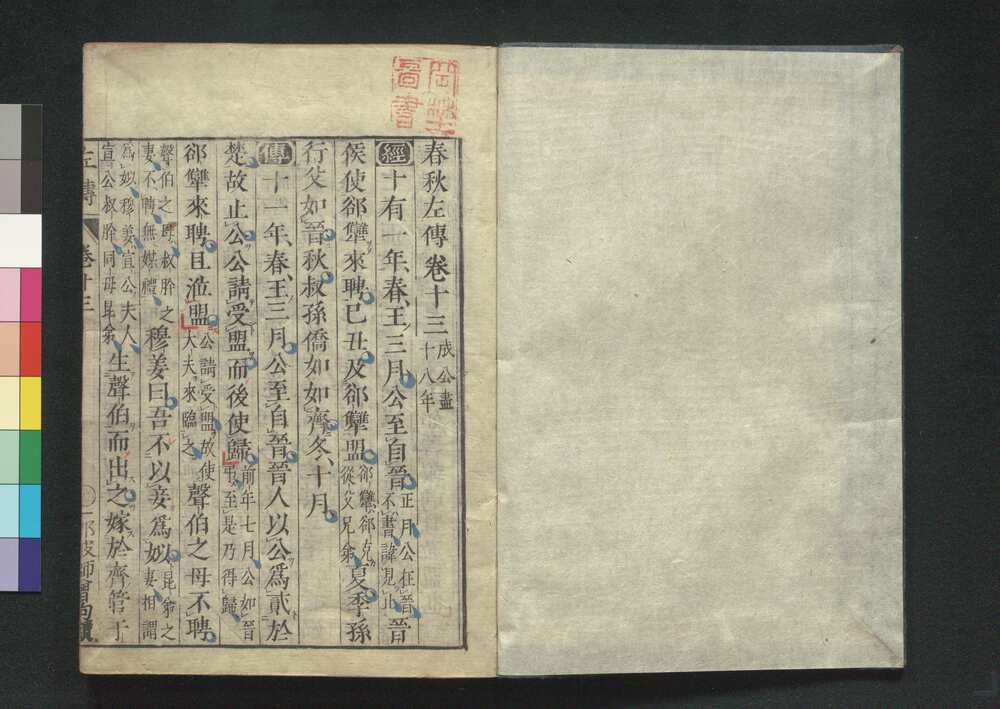 春秋左傳卷十三 成公盡十八年
經 十有一年、春、王三月、公至自晉 正月公在晉不書諱見止 晉
侯使郤犨來聘、己丑、及郤犨盟 郤犨郤克從父兄弟 夏、季孫
行父如晉、秋、叔孫僑如如齊、冬、十月、
傳 十一年、春、王三月、公至自晉、晉人以公爲貳於
楚、故止公、公請受盟、而後使歸 前年七月公如晉弔至是乃得歸
郤犨來聘、且涖盟 公請受盟故使大夫來臨之 聲伯之母不聘
聲伯之母叔肸之妻不聘無媒禮 穆姜曰、吾不以妾爲姒 昆弟之妻相謂
爲姒穆姜宣公夫人宣公叔肸同母昆弟 生聲伯而出之、嫁於齊管于
左傳 卷十三 一 那波師曾句讀
圖書